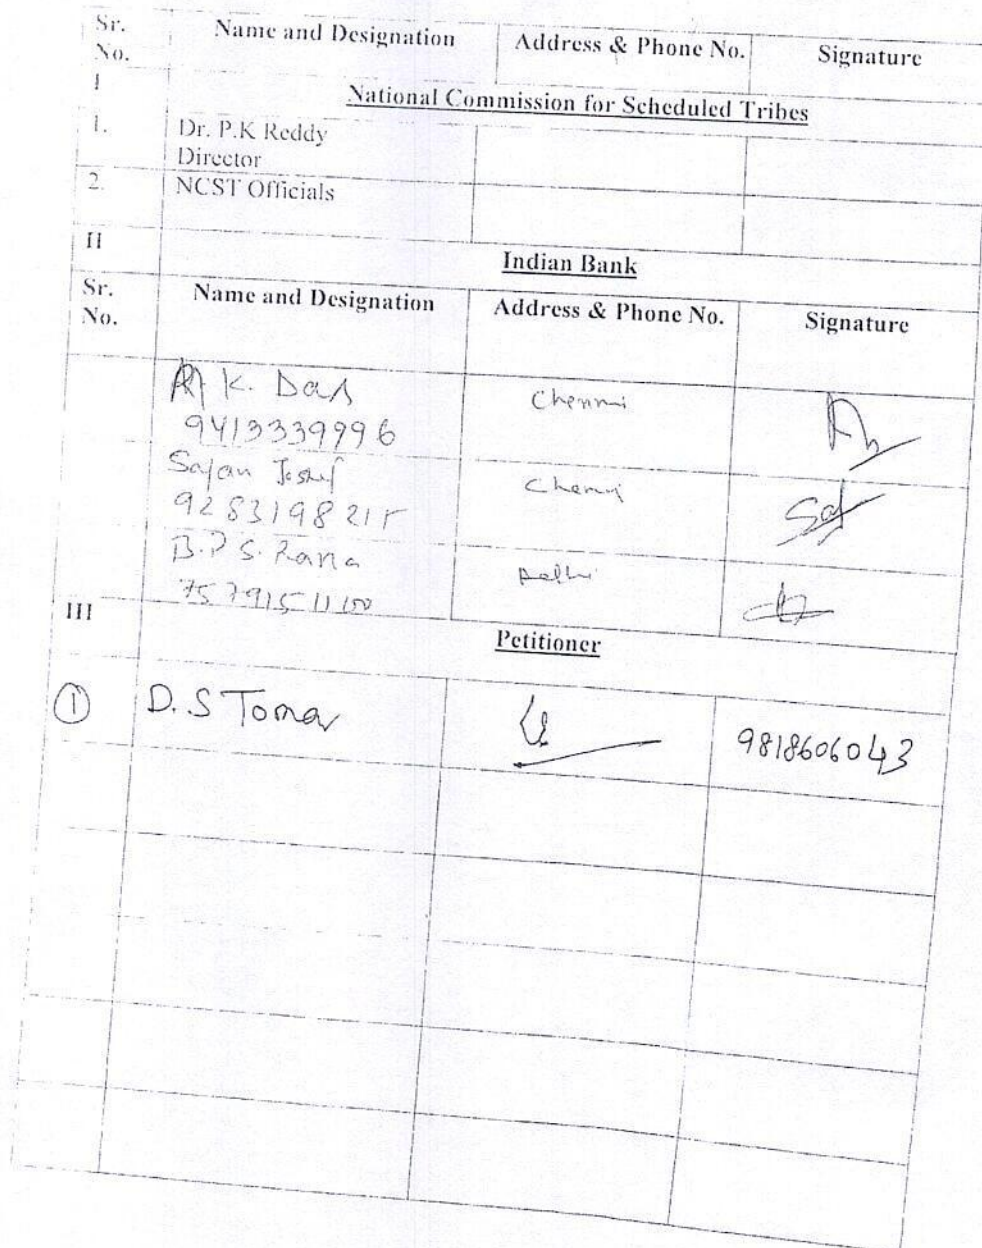 Sr. No. Name and Designation Address & Phone No. Signature
I National Commission for Scheduled Tribes
1. Dr. P.K Reddy
Director
2. NCST Officials
II Indian Bank
Sr. No. Name and Designation Address & Phone No. Signature
K. Das Chennai
9413339996
Sajan Josef Chennai
9283198215
B.P.S. Rana Delhi
III Petitioner
1 D.S Tomar 9818606043